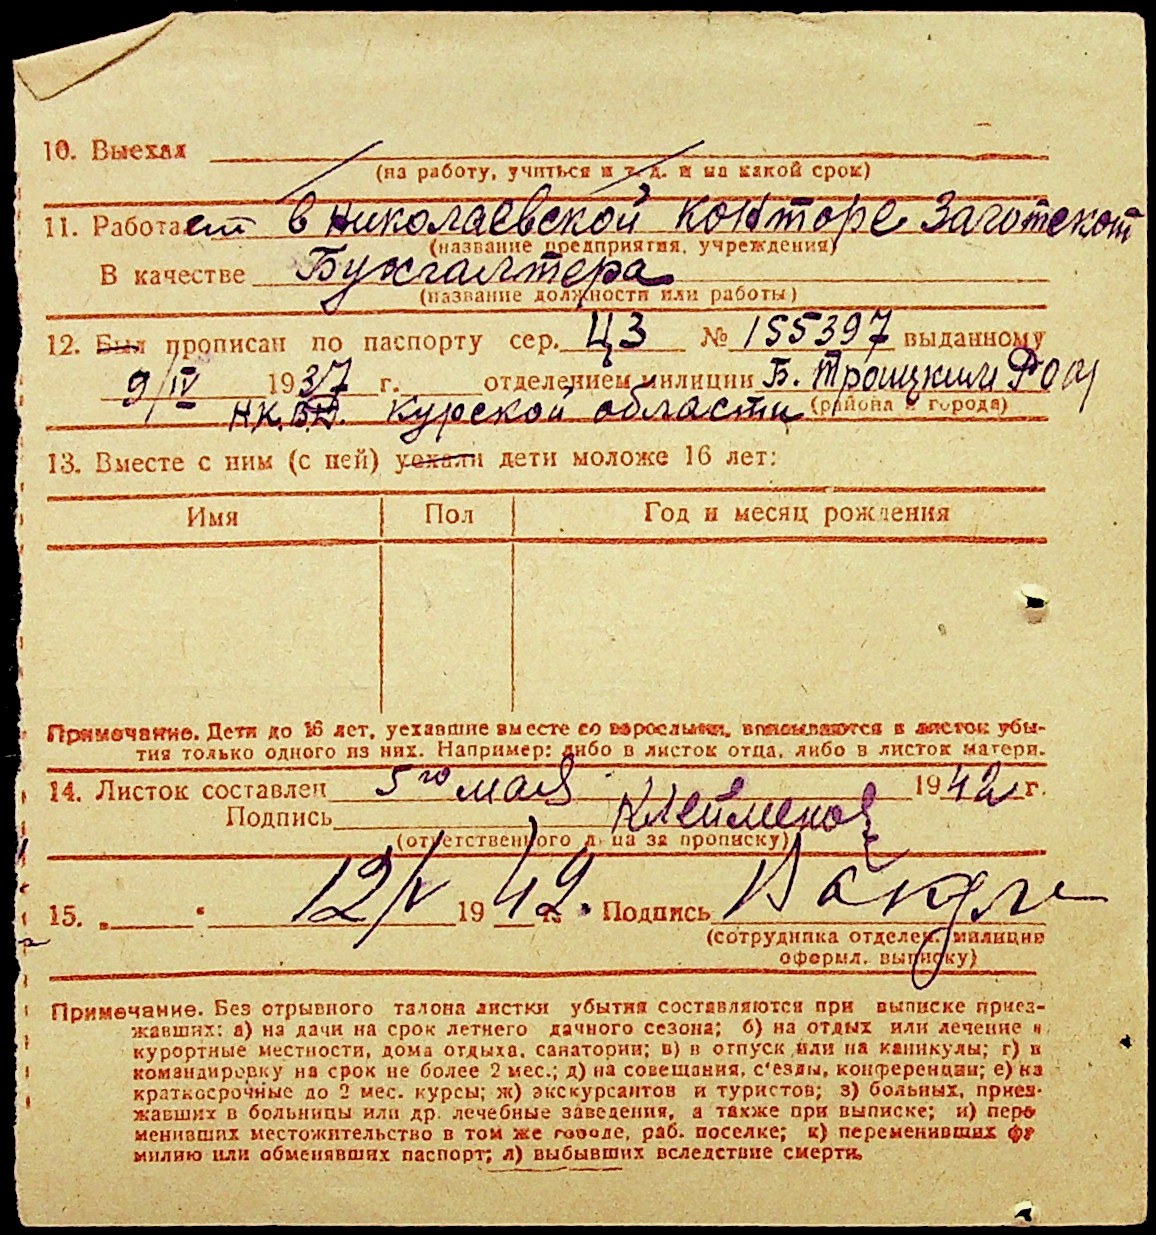 10. Выехал
(на работу, учиться и т. д. и на какой срок)
11. Работает в Николаевской конторе Заготскот
(название предприятия, учреждения)
В качестве Бухгалтера
(название должности или работы)
12. Был прописан по паспорту сер. ЦЗ № 155397 выданному
9/IV 1937 г. отделением милиции Б. Троицким РОМ
(района и города)
Н.К.В.Д. Курской области
13. Вместе с ним (с ней) уехали дети моложе 16 лет:
Имя Пол Год и месяц рождения
Примечание. Дети до 16 лет, уехавшие вместе со взрослыми, вписываются в листок убы-
тия только одного из них. Например: либо в листок отца, либо в листок матери.
14. Листок составлен 5го мая 1942 г.
Подпись Клейменов
(ответственного лица за прописку)
15. „ “ 12/V 1942 г. Подпись
(сотрудника отделен. милиции
оформл. выписку)
Примечание. Без отрывного талона листки убытия составляются при выписке приез-
жавших: а) на дачи на срок летнего дачного сезона; б) на отдых или лечение в
курортные местности, дома отдыха, санатории; в) в отпуск или на каникулы; г) в
командировку на срок не более 2 мес.; д) на совещания, с'езды, конференции; е) на
краткосрочные до 2 мес. курсы; ж) экскурсантов и туристов; з) больных, приез-
жавших в больницы или др. лечебные заведения, а также при выписке; и) пере
менивших местожительство в том же городе, раб. поселке; к) переменивших фа
милию или обменявших паспорт; л) выбывших вследствие смерти.